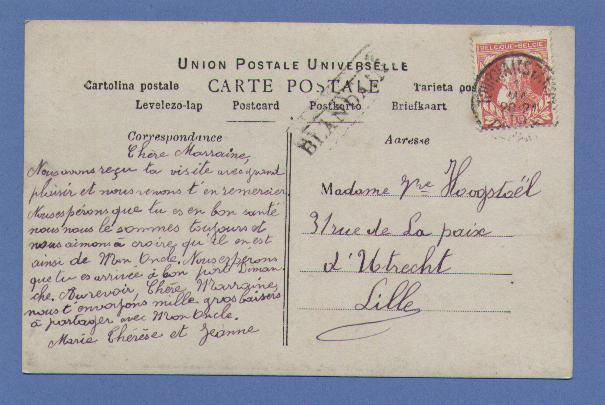 UNION POSTALE UNIVERSELLE
Cartolina postale CARTE POSTALE Tarjeta postal
Levelezo-lap Postcard Postkorto Briefkaart
BELGIQUE-BELGIË
BLANDAIN
Correspondance
Adresse
Chère Marraine,
Nous avons reçu ta visite avec grand
plaisir et nous venons t'en remercier.
Nous espérons que tu es en bon santé
nous nous le sommes toujours et
nous aimons à croire, qu'il en est
ainsi de Mon Oncle. Nous espérons
que tu es arrivée à bon port Diman-
che. Au revoir, Chère Marraine,
nous t'envoyons mille gros baisers
à partager avec Mon Oncle.
Marie Thérèse et Jeanne
Madame Vve Hoogstoël
31 rue de La paix
d'Utrecht
Lille